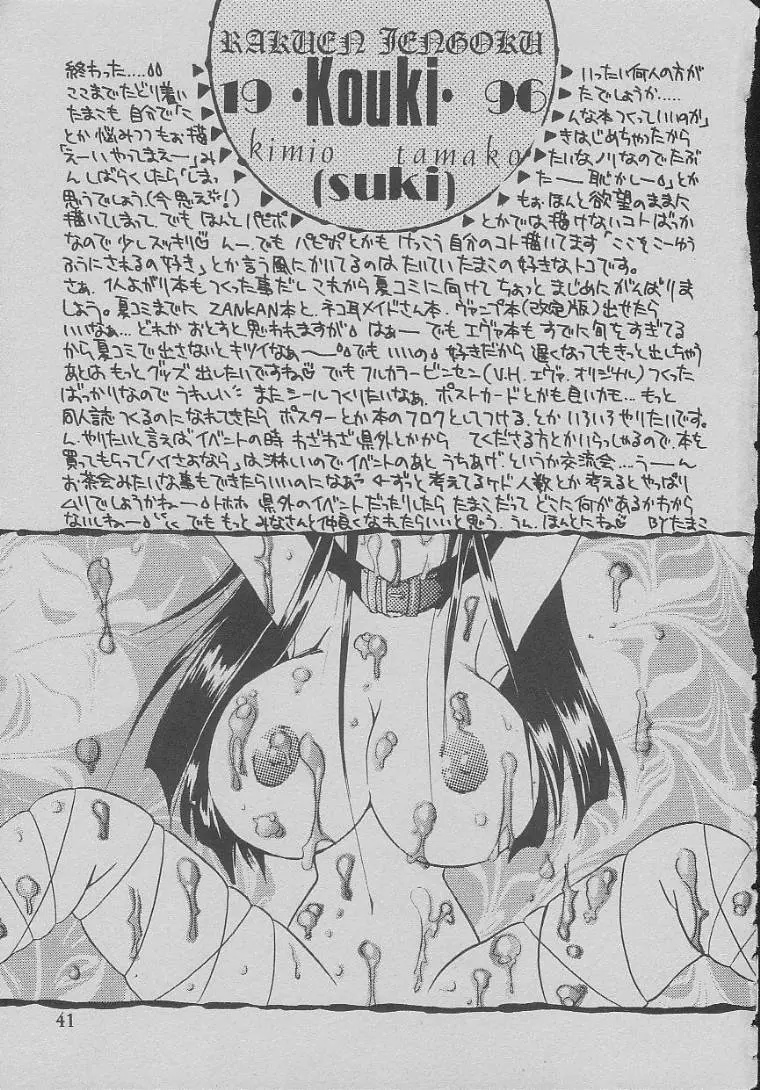 RAKUEN JENGOKU
19 ・Kouki・ 96
kimio tamako
(suki)
終わった....
いったい何人の方が
ここまでたどり着い
たでしょうか.....
たまこも自分で「こ
んな本つくっていいのか」
とか悩みつつもぉ描
きはじめちゃったから
「えーいやってまえー」み
たいなノリなのでたぶ
んしばらくしたら「しまっ
たー恥かしー」とか
思うでしょう(今思えぶ!)
もぉほんと欲望のままに
描いてしまって、でもほんとパピポ
とかでは描けないコトばっか
なので少しスッキリ♡ んー、でもパピポとかもけっこう自分のコト描いてます「ここそこーゆう
ふうにされるの好き」とか言う風にかいてるのはたいていたまこの好きなトコです。
さぁ、1人よがり本もつくった事だしこれから夏コミに向けてちょっとまじめにがんばりま
しょう。夏コミまでに ZANKAN本と、ネコ耳メイドさん本、ヴァンプ本(改定版)出せたら
いいなぁ... どれかおとすと思われますが はぁー でもエヴァ本もすでに旬をすぎてる
から夏コミで出さないとキツイなぁー でもいいの 好きだから遅くなってもきっと出しちゃう
あとはもっとグッズ出したいですね♡ でもフルカラービンセン(V.H. エヴァ. オリジナル)つくった
ばっかりなのでうれしい またシールつくりたいなぁ、ポストカードとかも良いかも... もっと
同人誌つくるのになれてきたらポスターとか本のフロクとしてつける、とかいろいろやりたいです。
ん、やりたいと言えばイベントの時わざわざ県外とかから てくださる方とかいらっしゃるので、本を
買ってもらって「ハイさよなら」は淋しいのでイベントのあとうちあげ、というか交流会....うーん
お茶会みたいな事もできたらいいのになぁ ←ずっと考えてるケド人数とか考えるとやっぱり
ムリでしょうかねー トホホ 県外のイベントだったりしたらたまこだってどこに何があるかわから
ないしねー でももっとみなさんと仲良くなれたらいいと思う、うん、ほんとにね♡ BYたまこ
41